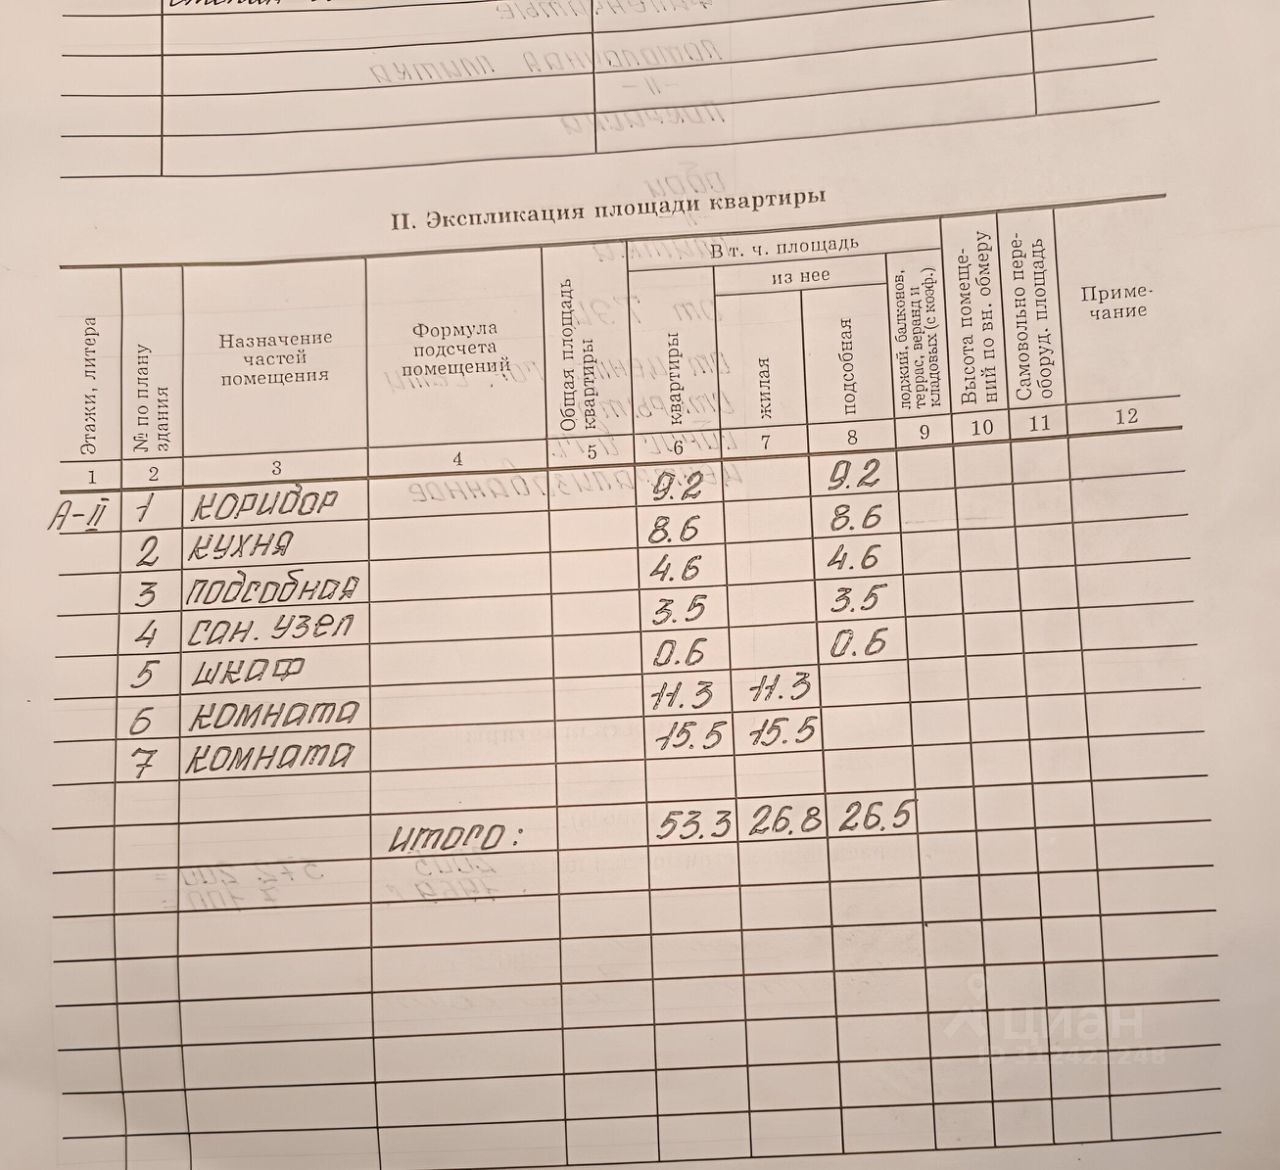 II. Экспликация площади квартиры
Этажи, литера
№ по плану здания
Назначение частей помещения
Формула подсчета помещений
Общая площадь квартиры
В т. ч. площадь
квартиры
из нее
жилая
подсобная
лоджий, балконов, террас, веранд и кладовых (с коэф.)
Высота помещений по вн. обмеру
Самовольно переоборуд. площадь
Примечание
1 2 3 4 5 6 7 8 9 10 11 12
А-II 1 коридор 9.2 9.2
2 кухня 8.6 8.6
3 подсобная 4.6 4.6
4 сан. узел 3.5 3.5
5 шкаф 0.6 0.6
6 комната 11.3 11.3
7 комната 15.5 15.5
итого: 53.3 26.8 26.5
циан